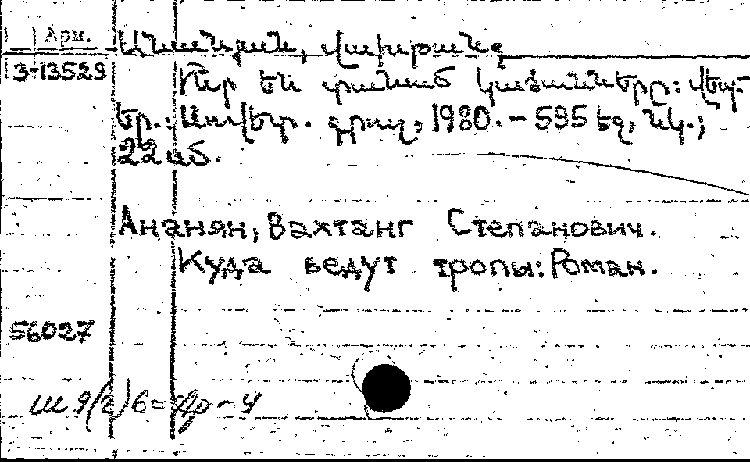 Арм.
Անանյան, Վախթանգ
3-13529
Ուր են տանում կածանները: Վեպ.-
Եր.: Սովետ. գրող, 1980.- 595 էջ, նկ.;
22 սմ.
Ананян, Вахтанг Степанович.
Куда ведут тропы: Роман.
56027